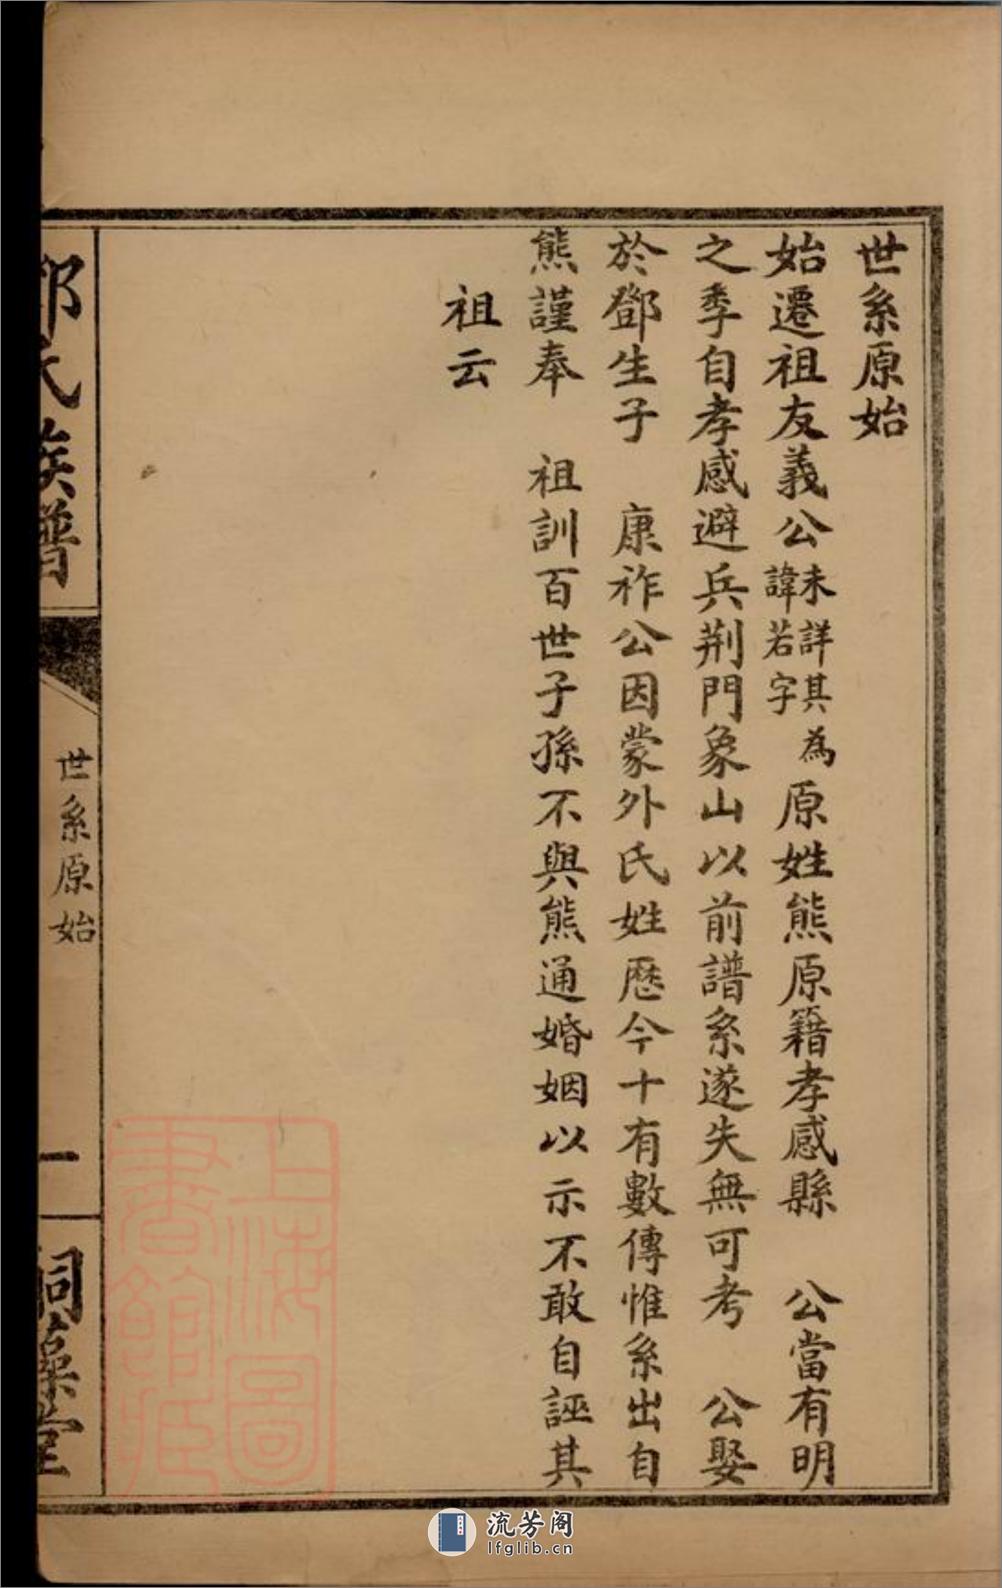 世系原始
始遷祖友義公未詳其諱若字為原姓熊原籍孝感縣 公當有明
之季自孝感避兵荆門象山以前譜系遂失無可考 公娶
於鄧生子 康祚公因蒙外氏姓歷今十有數傳惟系出自
熊謹奉 祖訓百世子孫不與熊通婚姻以示不敢自誣其
祖云
鄧氏族譜
世系原始
一
詞藻堂
上海圖書館藏
流芳阁
lfglib.cn